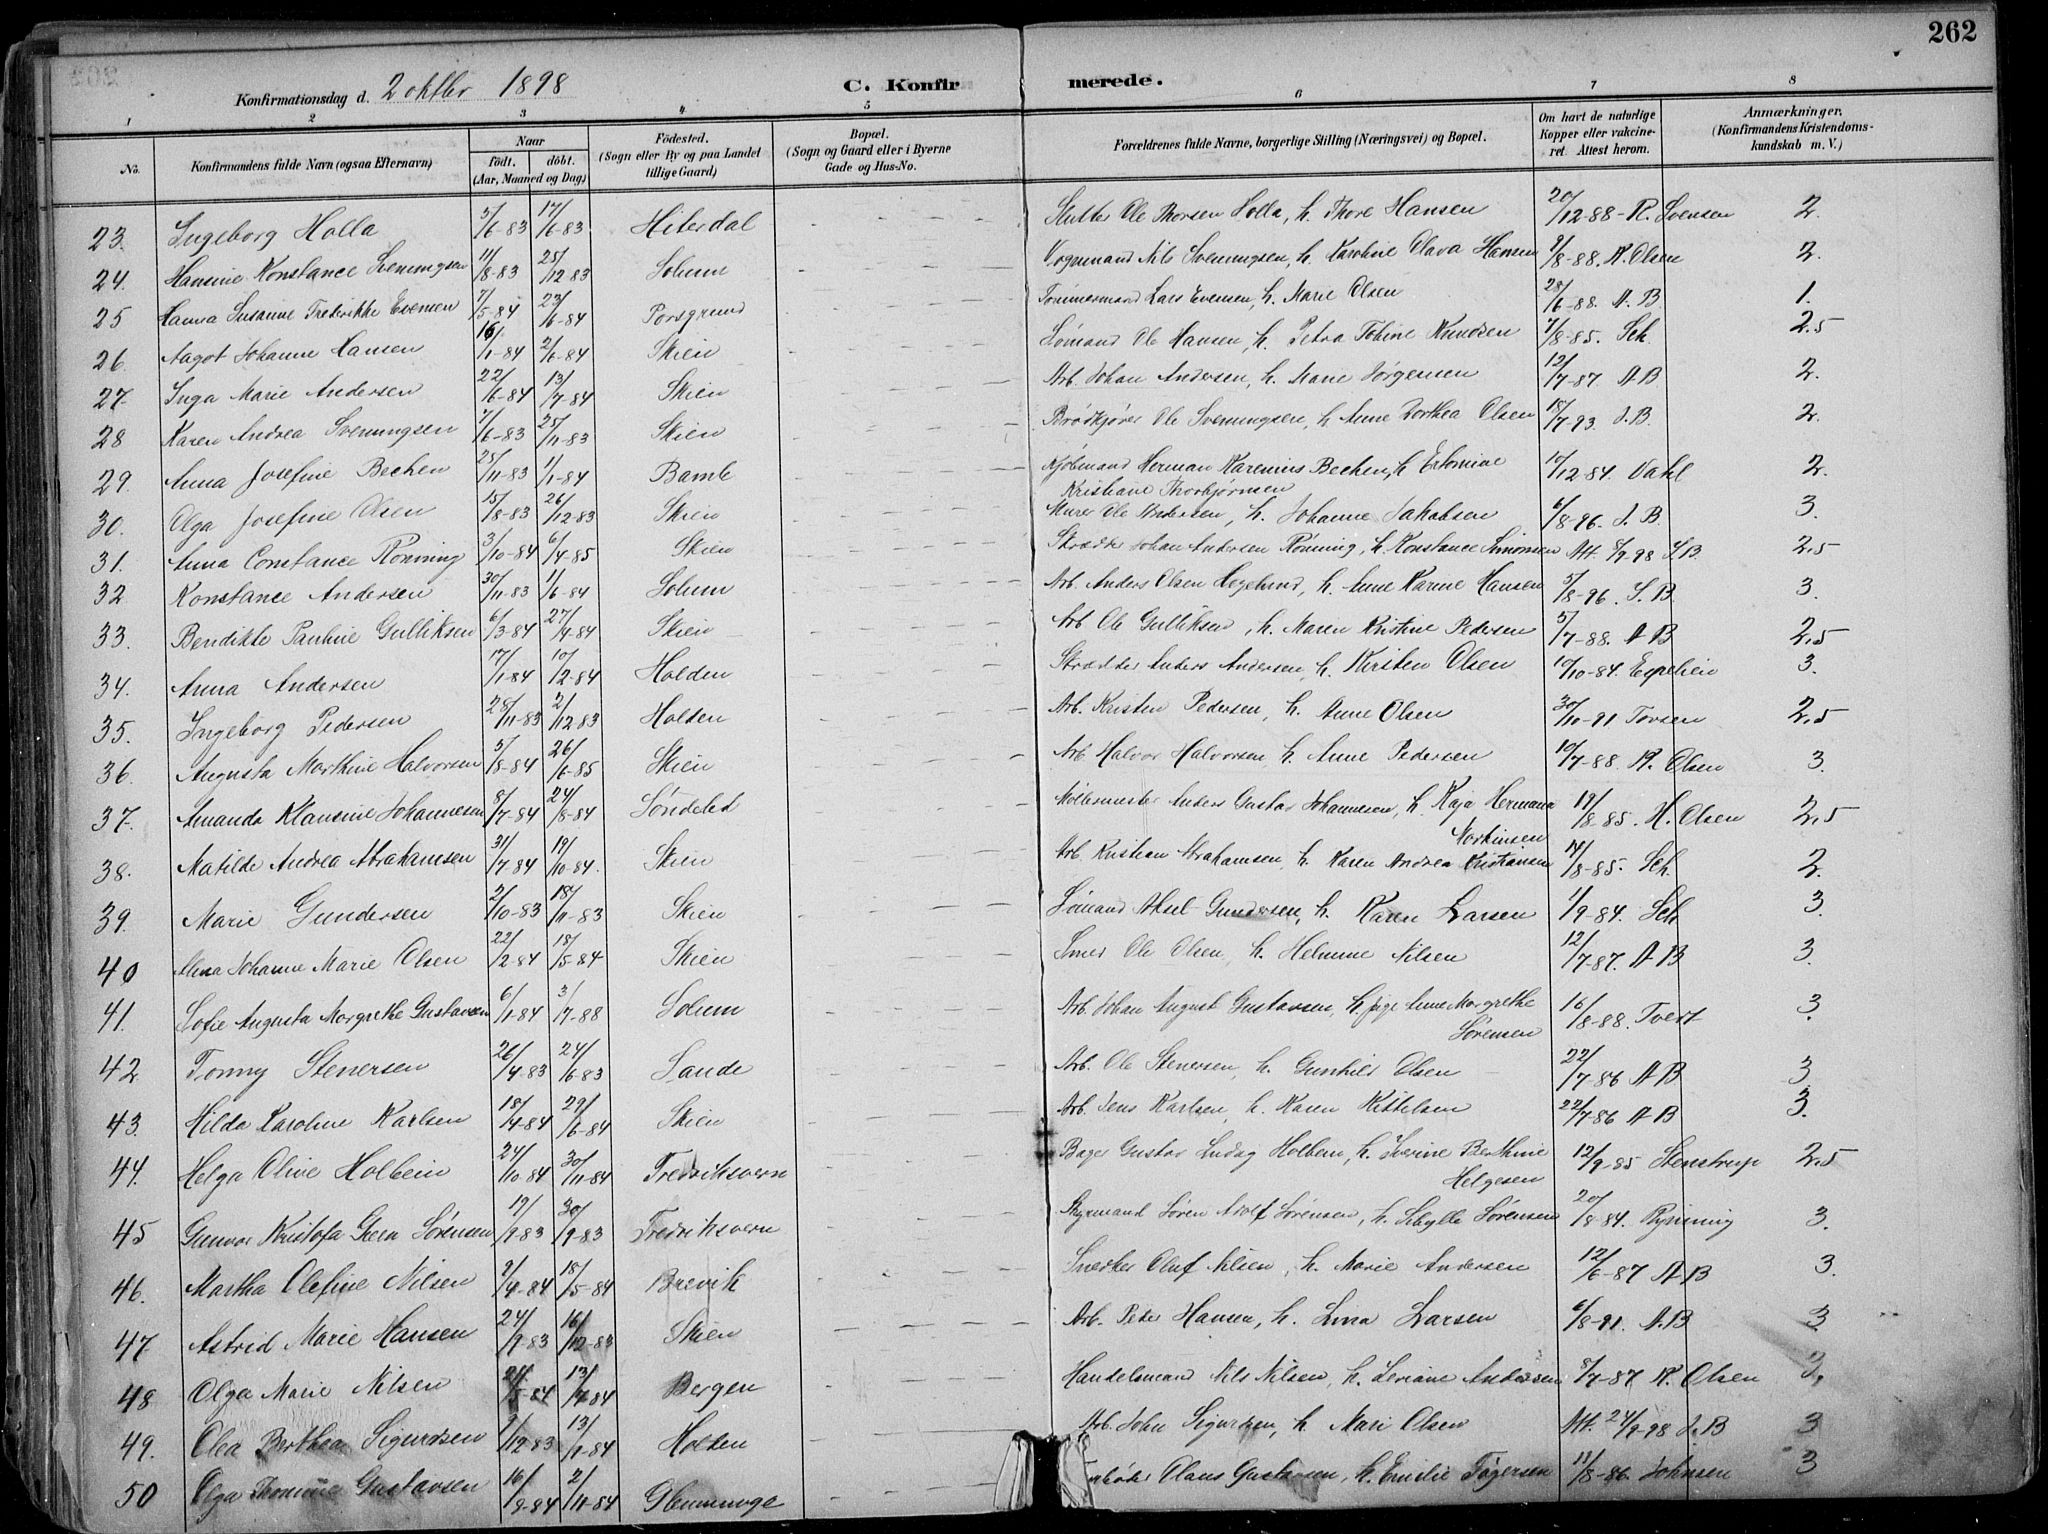 262
Konfirmationsdag d. 2 oktbr 1898 C. Konfirmerede.
1 2 3 4 5 6 7 8
No. Konfirmandens fulde Navn (ogsaa Efternavn) Naar født. døbt. (Aar, Maaned og Dag) Fødested. (Sogn eller By og paa Landet tillige Gaard) Bopæl. (Sogn og Gaard eller i Byerne Gade og Hus-No. Forældrenes fulde Navne, borgerlige Stilling (Næringsvei) og Bopæl. Om havt de naturlige Kopper eller vakcineret. Attest herom. Anmærkninger. (Konfirmandens Kristendomskundskab m. V.)
23. Ingeborg Holla 5/6-83 17/6-83 Hiterdal Ole Thorsen Holla, h. Thore Hansen 20/12-88 R. Svensen 2.
24. Hansine Konstance Svenningsen 11/8-83 25/12 83 Solum Vognmand Nils Svenningsen, h. Karoline Olava Hansen 2/8-88. R. Olsen 2.
25 Hanna Susanne Frederikke Evensen 7/5-84 23/6-84 Porsgrund Tømmermand Lars Evensen, h. Marie Olsen 28/6-88. A. B 1.
26. Aagot Johanne Hansen 16/1-84 2/6-84 Skien Sømand Ole Hansen, h. Petra Tobine Knudsen 7/8-85. Sch. 2.5
27. Inga Marie Andersen 22/6-84 13/7-84 Skien Arb. Johan Andersen, h. Marie Jørgensen 12/7-87. A B 2.
28 Karen Andrea Svenningsen 7/6-83 25/11-83 Skien Brødkjører Ole Svenningsen, h. Anne Dorthea Olsen 18/7-93. J.B. 2.
29. Anna Josefine Bechen 25/11-83 1/1-84 Bamle Kjøbmand Herman Karenius Bechen, h.
Kristiane Thorbjørnsen 10/12-84. Vahl 2.
30. Olga Josefine Olsen 15/8-83 26/12 83 Skien Murer Ole Andersen, h. Johanne Jakobsen 6/8-96. J. B. 3.
31. Anna Constance Rønning 3/10-84 6/4-85 Skien Skrædder Johan Andersen Rønning, h. Konstance Simonsen Att. 8/9-98 J.B. 2.5
32 Konstance Andersen 30/11-83 1/6-84 Solum Arb. Anders Olsen Hegelund, h. Anne Karine Hansen 5/8-96. J. B. 3.
33. Bendikte Pauline Gulliksen 6/3-84 27/4-84 Skien Arb Ole Gulliksen, h. Maren Kristine Pedersen 5/7-88. A B 2.5
34. Anna Andersen 17/1-84 10/2-84 Holden Skrædder Anders Andersen, h. Kirsten Olsen 10/10-84. 3.
35. Ingeborg Pedersen 28/11-83 2/12 83 Holden Arb. Kristen Pedersen, h. Anne Olsen 30/10-91 Tovsen 2.5
36. Augusta Marthine Halvorsen 5/8-84 26/6-85 Skien Arb Halvor Halvorsen h. Anne Pedersen 10/7-88 R. Olsen 3.
37. Amanda Klausine Johannesen 8/7-84 24/8-84 Søndeled Møllemester Anders Gustav Johannesen, h. Kaja Hermana
Martinsen 19/8-85. H. Olsen 2.5
38. Matilde Andrea Abrahamsen 31/7-84 19/10-84. Skien Arb. Kristian Abrahamsen, h. Karen Andrea Kristiansen 14/8-85. Sch. 2.
39. Marie Gundersen 2/10-83 18/11-83 Skien Sømand Aksel Gundersen, h. Karen Larsen 1/9-84. Sch 3.
40 Alma Johanne Marie Olsen 22/2-84 18/5-84 Skien Smed Ole Olsen, h. Helmine Nilsen 12/7-87. A B 3.
41. Sofie Augusta Margrethe Gustavsen 6/1-84 3/7-88 Solum Arb. Johan August Gustavsen, h. pige Anne Margrethe
Sørensen 16/8-88. Tvedt 3.
42. Tonny Stenersen 26/4-83 24/6-83 Sande Arb. Ole Stenersen, h. Gunhild Olsen 22/7-86 A B 3
43. Hilda Karoline Karlsen 18/4-84 29/6-84 Skien Arb. Jens Karlsen, h. Karen Kittelsen 22/7-86 A B 3.
44. Helga Olive Holbein 24/10 84 30/11-84 Fredriksvern Bager Gustav Ludvig Holbein, h. Severine Berthine
Helgesen 12/9-85 Stenstrup 2.5
45 Gunvor Kristofa Sørensen 19/9-83 30/9-83 Fredriksvern Styrmand Søren Adolf Sørensen, h. Sibylle Sørensen 20/8-84. Rynning 3.
46. Martha Olefine Nilsen 2/4-84 18/5-84 Brevik Snedker Oluf Nilsen, h. Marie Andersen 12/6-87 A B 3.
47 Astrid Marie Hansen 24/9-83 16/12-83 Skien Arb. Peder Hansen, h. Lina Larsen 6/8-91. A.B 3
48 Olga Marie Nilsen 84 13/ 84 Bergen Handelsmand Nils Nilsen, h. Andersen 8/7-87 R. Olsen 3.
49. Olea Berthea Sigurdsen 2/12 83 13/1-84 Holden Arb. John Sigurdsen, h. Mari Olsen Att. 24/9-98 J.B 3
50 Olga Thomine Gustavsen 16/9-84 2/11-84 Glemminge Olaus Gustavsen, h. Emilie Tøgersen 11/8-86 Johnsen 3